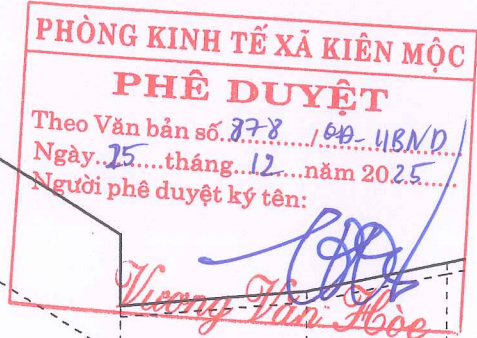 PHÒNG KINH TẾ XÃ KIÊN MỘC
PHÊ DUYỆT
Theo Văn bản số 878 / QĐ-UBND
Ngày 25 tháng 12 năm 2025
Người phê duyệt ký tên:
Vương Văn Hòe